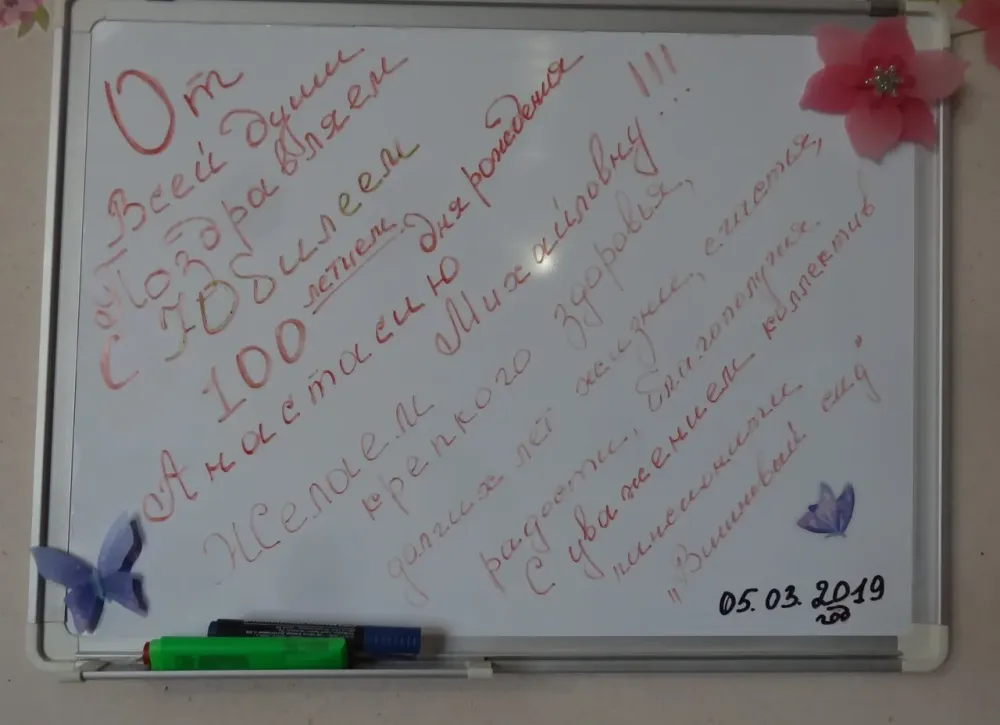 От
Всей души
Поздравляем
с Юбилеем
100 летием дня рождения
Анастасию Михайловну!!!
Желаем
крепкого здоровья,
долгих лет жизни, счастья,
радости, благополучия
С уважением коллектив
пансионата
"Вишнёвый сад"
05.03.2019
год